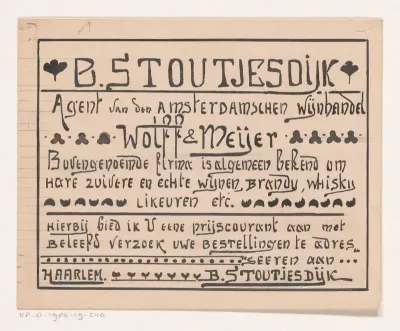 B. STOUTJESDIJK
Agent van den AMSTERDAMSCHEN Wijnhandel
Wolff & Meijer
Bovengenoemde firma is algemeen bekend om
Hare zuivere en echte wijnen, Brandy, whisky
Likeuren etc.
Hierbij bied ik U eene prijscourant aan met
Beleefd verzoek uwe bestellingen te adres
seeren aan
HAARLEM. B. STOUTJESDIJK